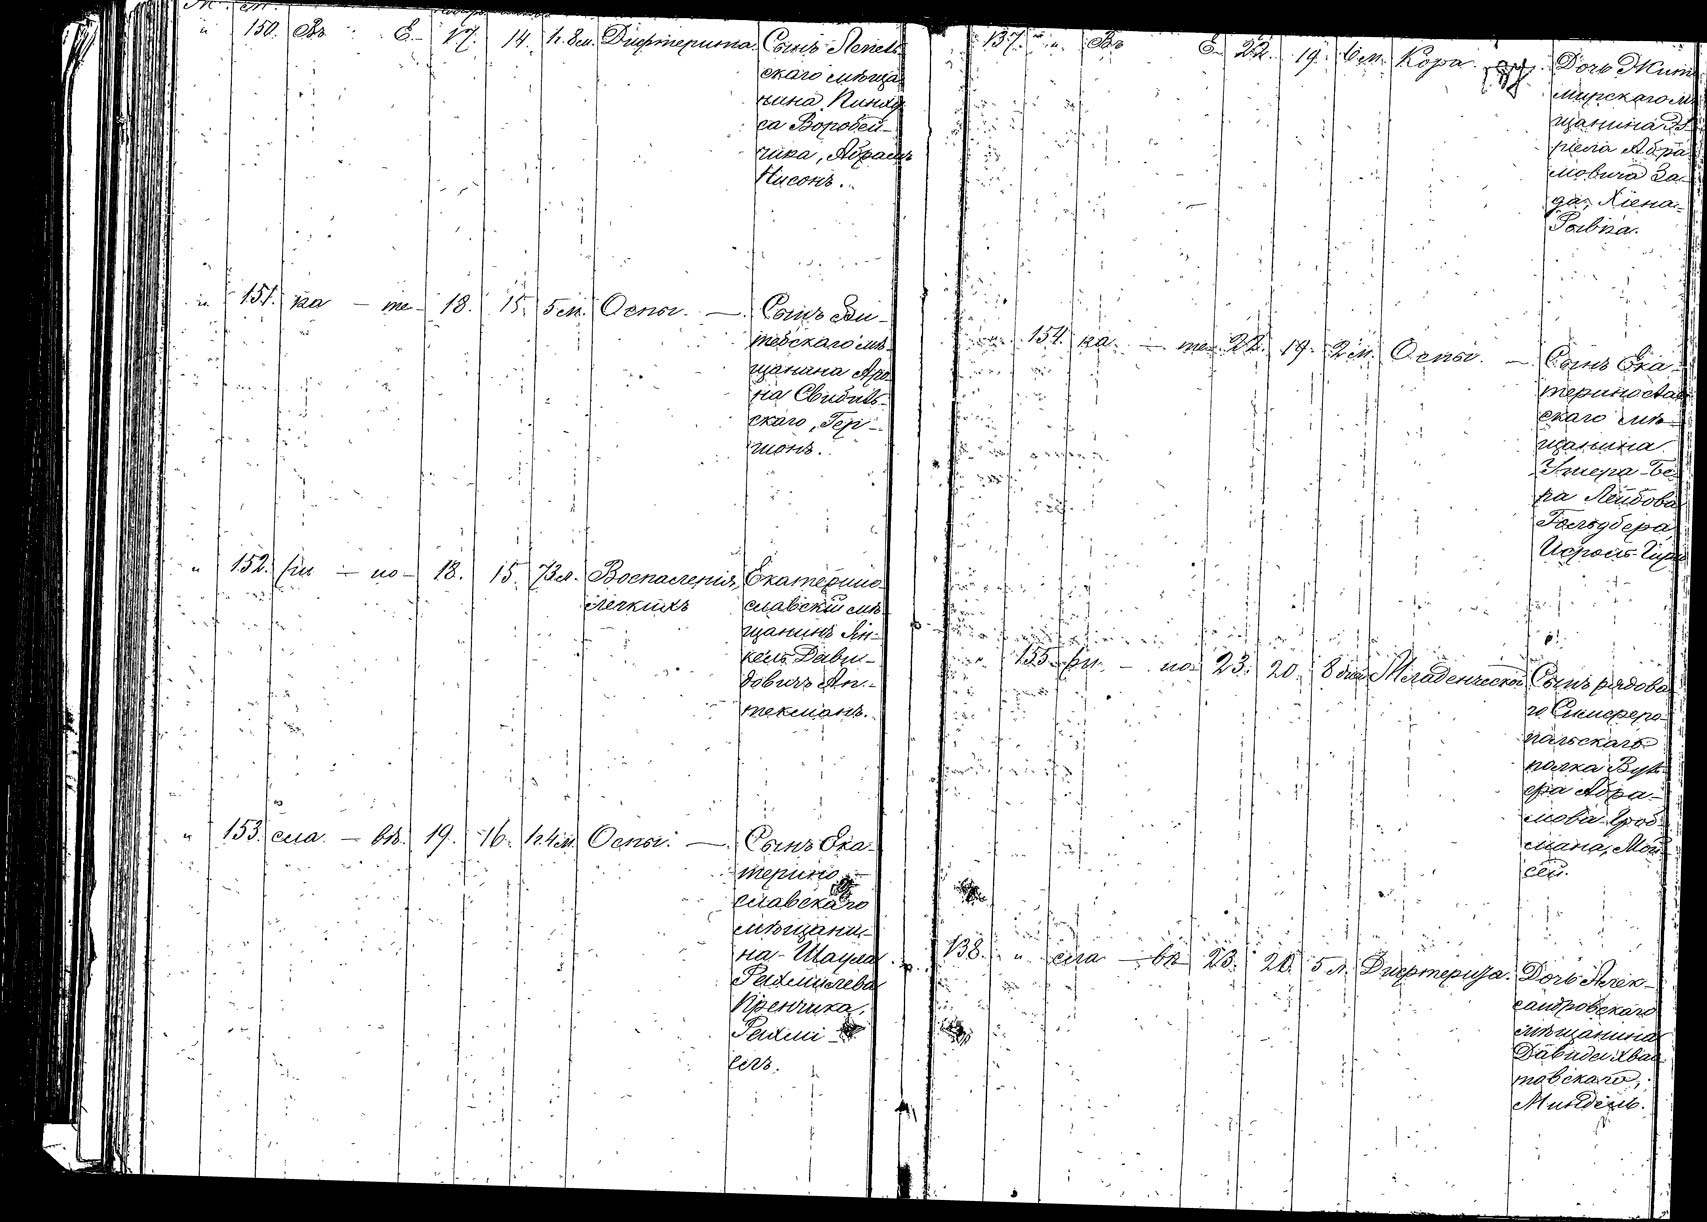 150. Въ Е- 17. 14. Дифтерита. Сынъ Лепель
скаго мѣща
нина Пинху
са Воробей-
чика, Абрамъ
Нисонъ.
151. ка - те- 18. 15. 5 м. Оспы. - Сынъ Ви-
тебскаго мѣ-
щанина Аро-
на
скаго, Гер-
шонъ.
152. ри - но- 18. 15. 73 л. Воспаленія Екатерино-
легкихъ славскій мѣ-
щанинъ Ян-
кель Дави-
довичъ Ап-
текманъ.
153. сла - вѣ. 19. 16. Оспы. - Сынъ Ека-
терино-
славскаго
мѣщани-
на Шаула
Рахмилева
Пренчика,
Рахми-
ель.
137. Въ Е- 22. 19. 6 м. Кора Дочь Жито
мирскаго мѣ
щанина
Абра
мовича За-
да,
Рывка.
154. ка - те- 22. 19. 2 м. Оспы. - Сынъ Ека-
теринослав
скаго мѣ-
щанина
Ушера-Бе-
ра Лейбова
Гольдбера
155. ри - но- 23. 20. 8 дней Младенческой Сынъ рядова-
го Симферо-
польскаго
полка
Абра-
мова
мана, Мой-
сей.
138. сла - вѣ 23. 20. 5 л. Дифтерита. Дочь Алек-
сандровскаго
мѣщанина
Давида Хвас
товскаго,
Миндель.